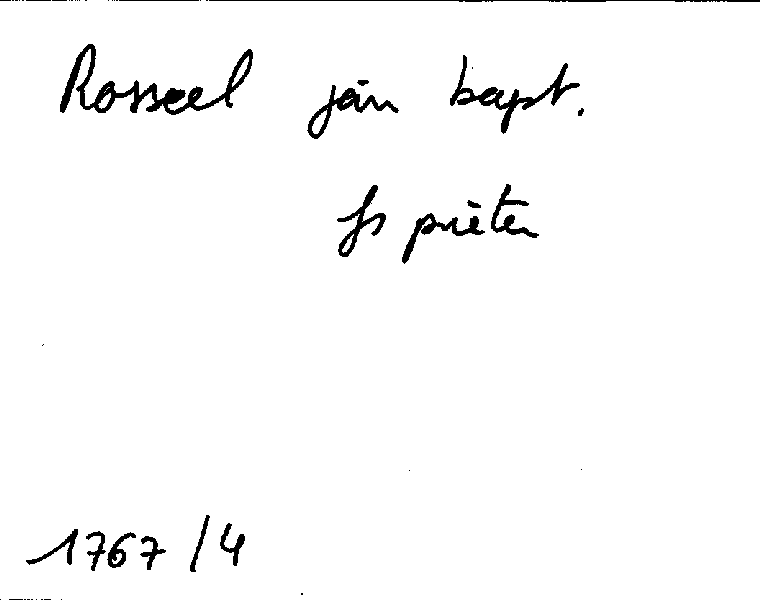 Rosseel jan bapt.
fs pieter
1767 / 4